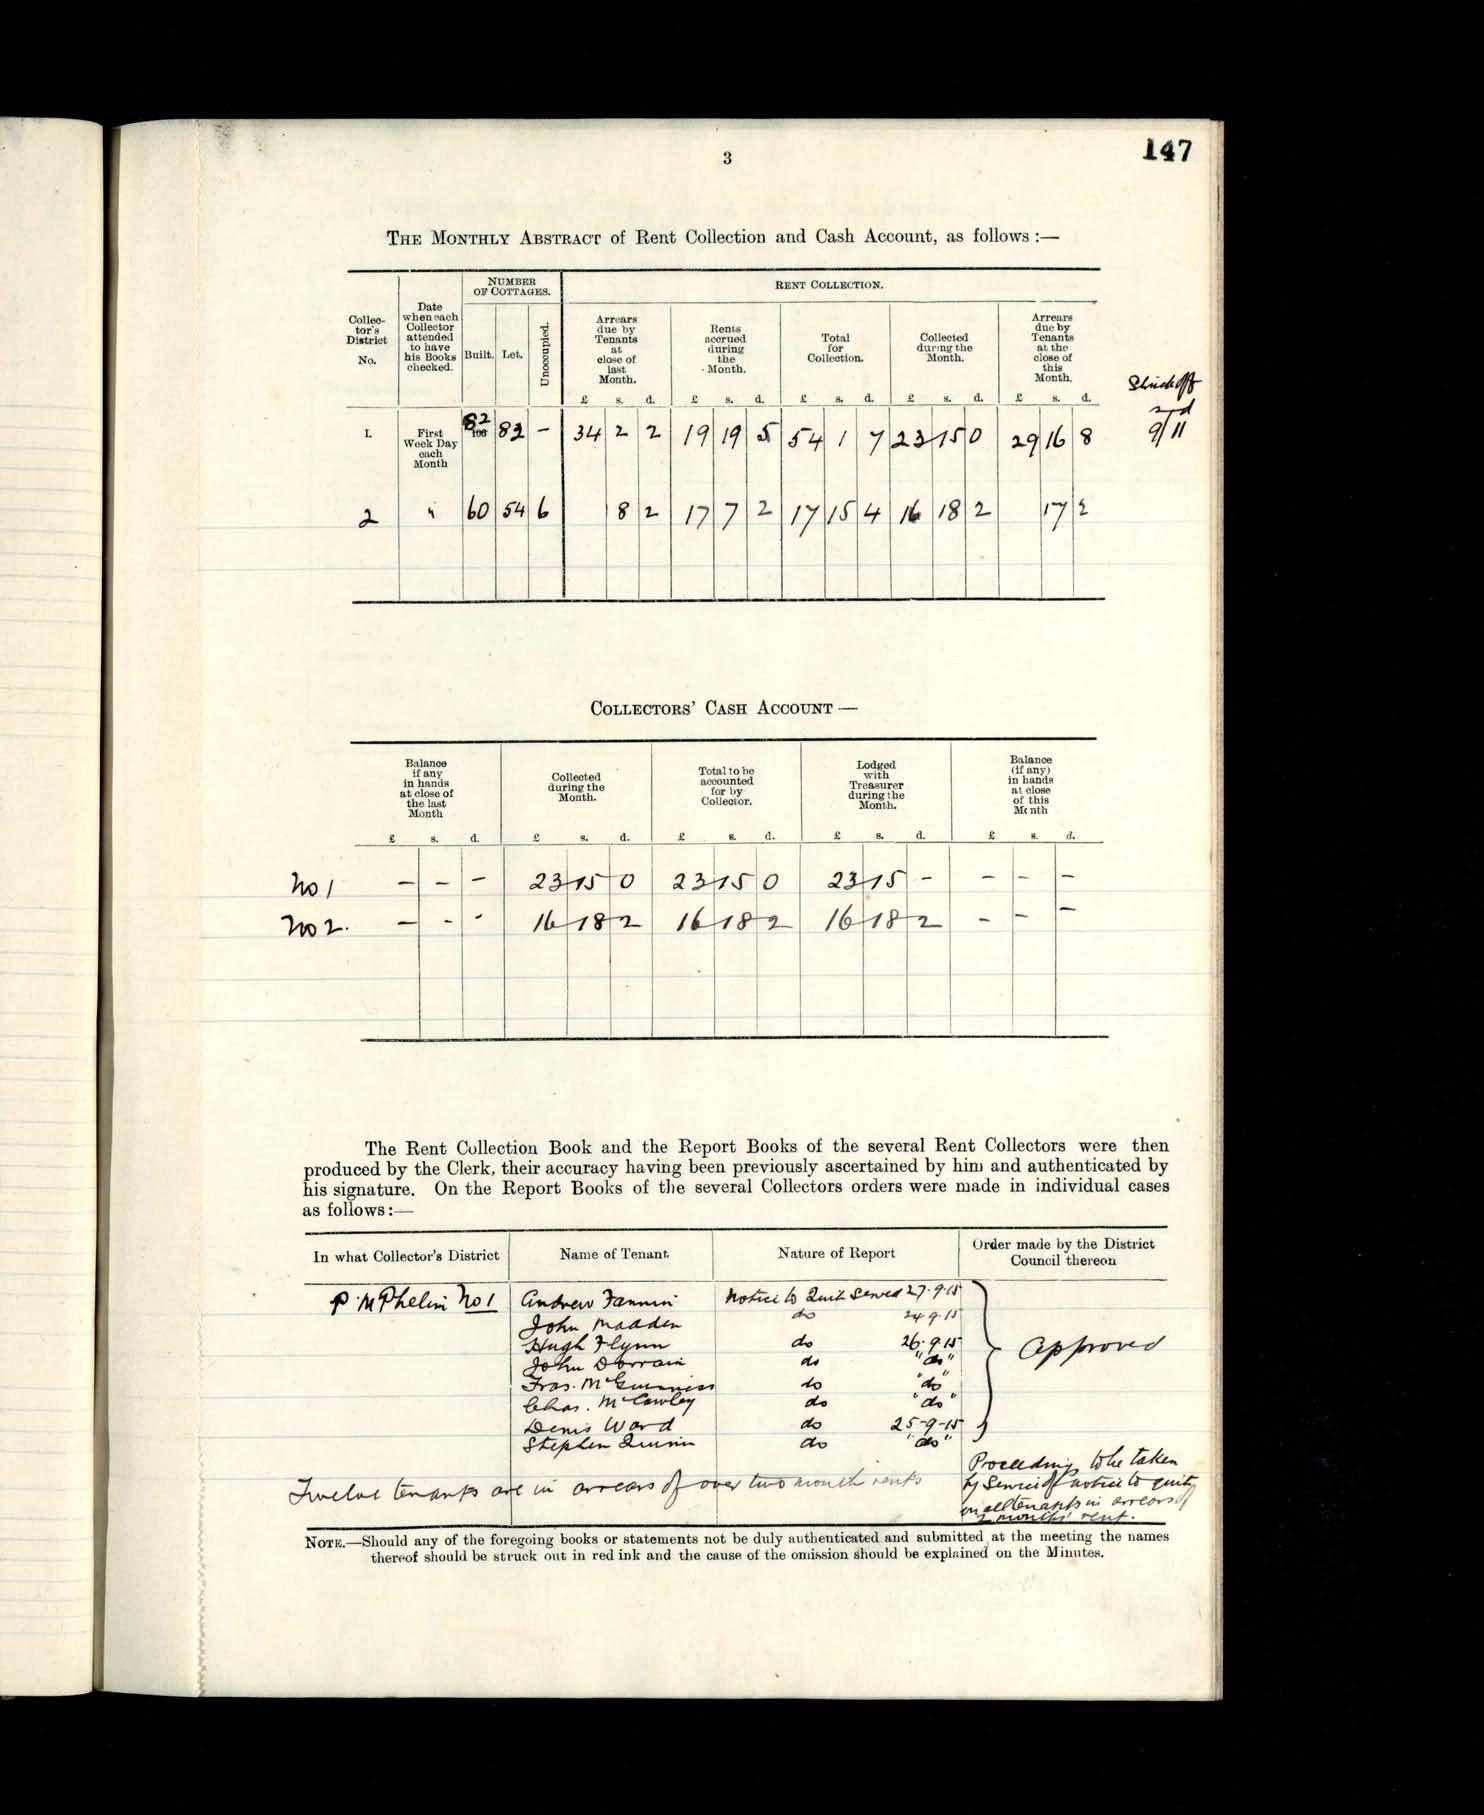 3
147
THE MONTHLY ABSTRACT of Rent Collection and Cash Account, as follows :—
Collector's District No. | Date when each Collector attended to have his Books checked. | NUMBER OF COTTAGES. Built. Let. Unoccupied. | RENT COLLECTION. Arrears due by Tenants at close of last Month. | Rents accrued during the Month. | Total for Collection. | Collected during the Month. | Arrears due by Tenants at the close of this Month.
£ s. d. £ s. d. £ s. d. £ s. d. £ s. d.
Struck off
s d
9/11
I. First Week Day each Month 82 106 82 – 34 2 2 19 19 5 54 1 7 23 15 0 29 16 8
2 " 60 54 6 8 2 17 7 2 17 15 4 16 18 2 17 2
COLLECTORS' CASH ACCOUNT —
Balance if any in hands at close of the last Month | Collected during the Month. | Total to be accounted for by Collector. | Lodged with Treasurer during the Month. | Balance (if any) in hands at close of this Month
£ s. d. £ s. d. £ s. d. £ s. d. £ s. d.
No 1 – – – 23 15 0 23 15 0 23 15 – – – –
No 2. – – – 16 18 2 16 18 2 16 18 2 – – –
The Rent Collection Book and the Report Books of the several Rent Collectors were then
produced by the Clerk, their accuracy having been previously ascertained by him and authenticated by
his signature. On the Report Books of the several Collectors orders were made in individual cases
as follows:—
In what Collector's District | Name of Tenant | Nature of Report | Order made by the District Council thereon
P. McPhelim No 1 Andrew Fannin Notice to Quit Served 27.9.15
John Madden do 24.9.15
Hugh Flynn do 26.9.15
John Dorrain do "do"
Fras. McGuinness do "do"
Chas. McCawley do "do"
Denis Ward do 25-9-15
Stephen Quinn do "do"
Approved
Twelve tenants are in arrears of over two month rents
Proceedings to be taken
by Service of notice to quit
on all tenants in arrears of
2 months' rent.
NOTE.—Should any of the foregoing books or statements not be duly authenticated and submitted at the meeting the names
thereof should be struck out in red ink and the cause of the omission should be explained on the Minutes.